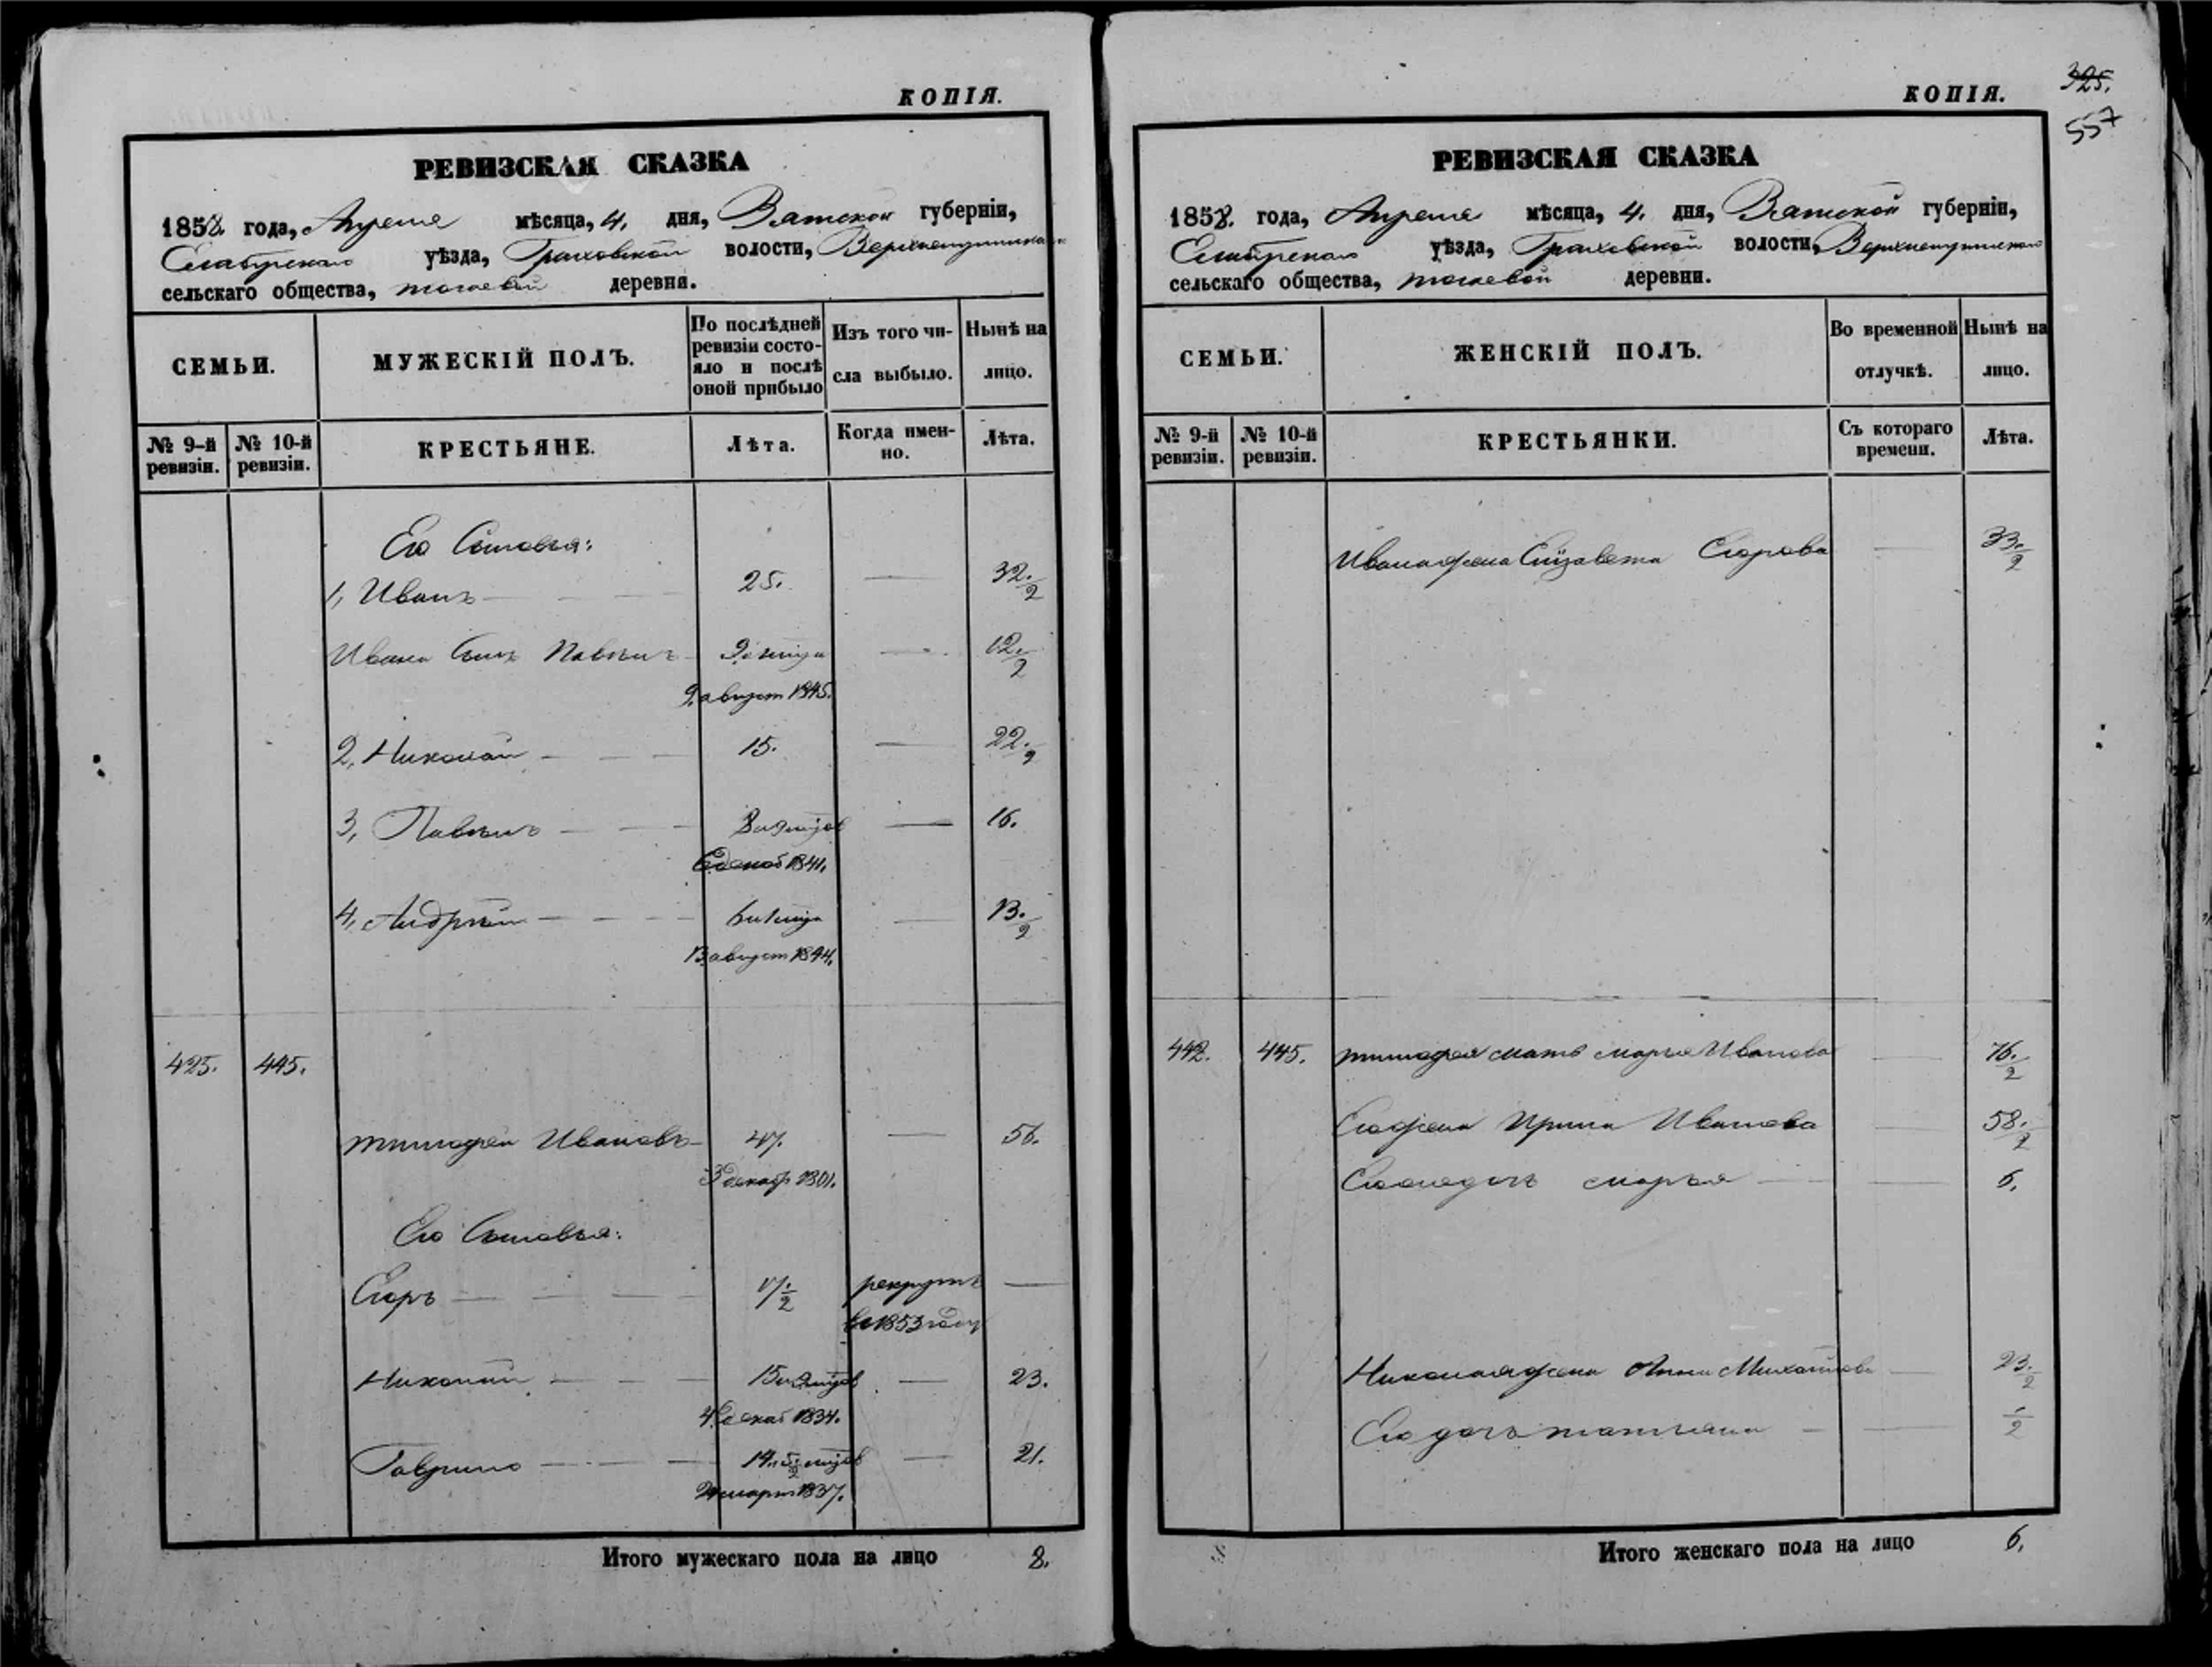 КОПІЯ.
РЕВИЗСКАЯ СКАЗКА
1858. года, Апреля мѣсяца, 4. дня, Вятской губерніи,
Елабугскаго уѣзда, Граховской волости,
сельскаго общества, деревни.
СЕМЬИ.
МУЖЕСКІЙ ПОЛЪ.
По послѣдней ревизіи состо-
яло и послѣ оной прибыло
Изъ того чи-
сла выбыло.
Нынѣ на
лицо.
№ 9-й ревизіи.
№ 10-й ревизіи.
КРЕСТЬЯНЕ.
Лѣта.
Когда имен-
но.
Лѣта.
Его Сыновья:
1, Иванъ 25. — 32. 1/2
Ивана Сынъ Павелъ — 12. 1/2
9. август 1845.
2, Николай 15. — 22. 1/2
3, Павелъ — 16.
6 декаб 1841.
4, Андрей — 13. 1/2
13 август 1844.
425. 445.
Тимофей Ивановъ 47. — 56.
3 декаб 1801.
Его Сыновья:
Егоръ 17. 1/2 рекрутъ —
въ 1853 году
Николай — 23.
4 декаб 1834.
Гаврило — 21.
март 1837.
Итого мужескаго пола на лицо 8.
КОПІЯ.
325.
557
РЕВИЗСКАЯ СКАЗКА
1858. года, Апреля мѣсяца, 4. дня, Вятской губерніи,
Елабугскаго уѣзда, Граховской волости,
сельскаго общества, деревни.
СЕМЬИ.
ЖЕНСКІЙ ПОЛЪ.
Во временной
отлучкѣ.
Нынѣ на
лицо.
№ 9-й ревизіи.
№ 10-й ревизіи.
КРЕСТЬЯНКИ.
Съ котораго
времени.
Лѣта.
Ивана жена Елизавета Егорова — 33. 1/2
442. 445. Тимофея мать Марья Иванова — 76. 1/2
Его жена Ирина Иванова — 58. 1/2
Марья — 6.
Николая жена Анна Михайлова — 23. 1/2
Его дочь Татьяна — 1/2
Итого женскаго пола на лицо 6.